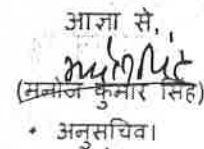 आज्ञा से,
(मनोज कुमार सिंह)
अनुसचिव।